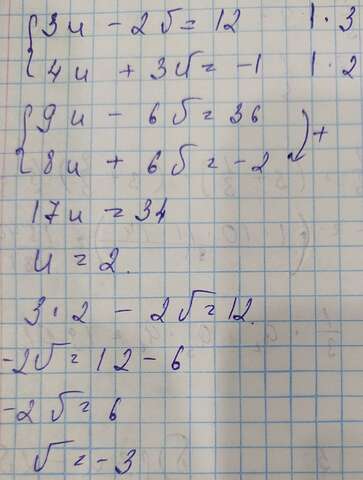 {3u - 2v = 12 | · 3
{4u + 3v = -1 | · 2
{9u - 6v = 36
{8u + 6v = -2 ) +
17u = 34
u = 2.
3 · 2 - 2v = 12.
-2v = 12 - 6
-2v = 6
v = -3